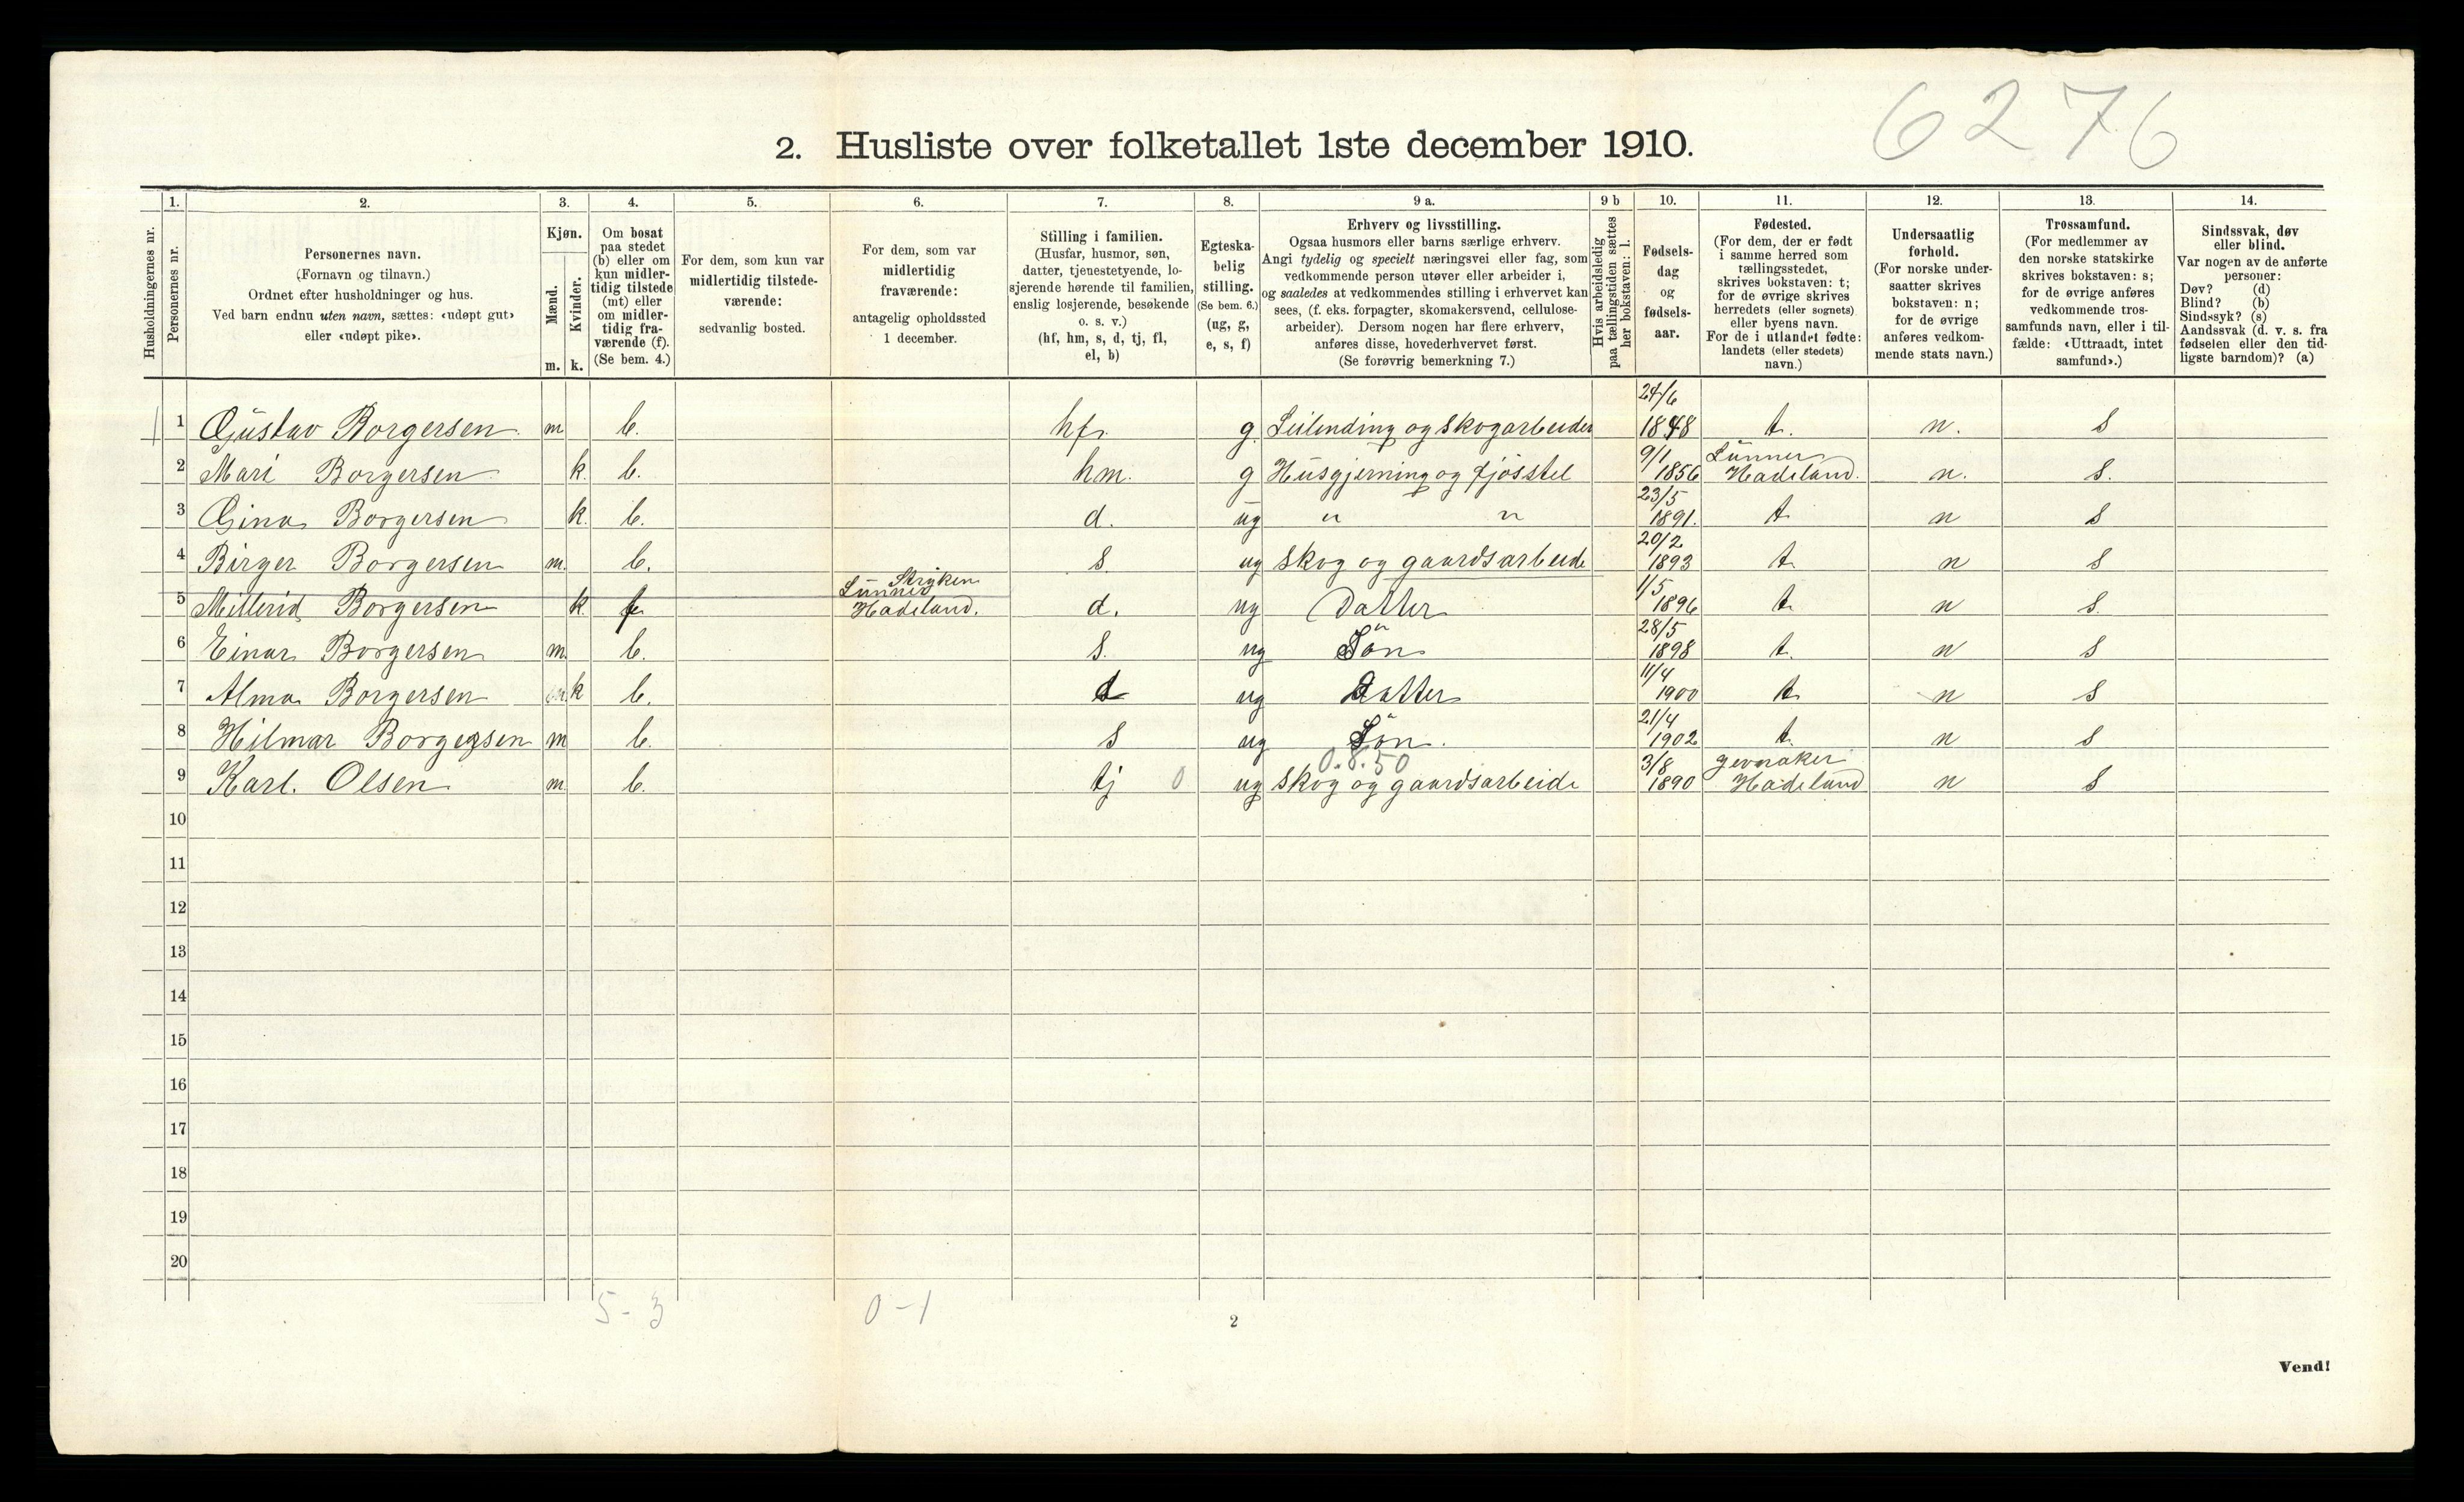 6276
2. Husliste over folketallet 1ste december 1910.
Husholdningernes nr.
1.
Personernes nr.
2.
Personernes navn.
(Fornavn og tilnavn.)
Ordnet efter husholdninger og hus.
Ved barn endnu uten navn, sættes: «udøpt gut»
eller «udøpt pike».
3.
Kjøn.
Mænd.
Kvinder.
m. k.
4.
Om bosat
paa stedet
(b) eller om
kun midler-
tidig tilstede
(mt) eller
om midler-
tidig fra-
værende (f).
(Se bem. 4.)
5.
For dem, som kun var
midlertidig tilstede-
værende:
sedvanlig bosted.
6.
For dem, som var
midlertidig
fraværende:
antagelig opholdssted
1 december.
7.
Stilling i familien.
(Husfar, husmor, søn,
datter, tjenestetyende, lo-
sjerende hørende til familien,
enslig losjerende, besøkende
o. s. v.)
(hf, hm, s, d, tj, fl,
el, b)
8.
Egteska-
belig
stilling.
(Se bem. 6.)
(ug, g,
e, s, f)
9 a.
Erhverv og livsstilling.
Ogsaa husmors eller barns særlige erhverv.
Angi tydelig og specielt næringsvei eller fag, som
vedkommende person utøver eller arbeider i,
og saaledes at vedkommendes stilling i erhvervet kan
sees, (f. eks. forpagter, skomakersvend, cellulose-
arbeider). Dersom nogen har flere erhverv,
anføres disse, hovederhvervet først.
(Se forøvrig bemerkning 7.)
9 b
Hvis arbeidsledig
paa tællingstiden sættes
her bokstaven: l.
10.
Fødsels-
dag
og
fødsels-
aar.
11.
Fødested.
(For dem, der er født
i samme herred som
tællingsstedet,
skrives bokstaven: t;
for de øvrige skrives
herredets (eller sognets)
eller byens navn.
For de i utlandet fødte:
landets (eller stedets)
navn.)
12.
Undersaatlig
forhold.
(For norske under-
saatter skrives
bokstaven: n;
for de øvrige
anføres vedkom-
mende stats navn.)
13.
Trossamfund.
(For medlemmer av
den norske statskirke
skrives bokstaven: s;
for de øvrige anføres
vedkommende tros-
samfunds navn, eller i til-
fælde: «Uttraadt, intet
samfund».)
14.
Sindssvak, døv
eller blind.
Var nogen av de anførte
personer:
Døv? (d)
Blind? (b)
Sindssyk? (s)
Aandssvak (d. v. s. fra
fødselen eller den tid-
ligste barndom)? (a)
1 Gustav Borgersen m b. hf. g. Leilending og skogarbeider 24/6 1848 t. n. s
2 Mari Borgersen k. b. hm. g Husgjerning og fjösstel 9/1 1856 Lunner Hadeland. n. s.
3 Gina Borgersen k. b. d. ug " " 23/5 1891. t n s
4 Birger Borgersen m. b. s. ug skog og gaardsarbeide 20/2 1893 t n s
5 Borgersen k f Stryken Lunner Hadeland. d. ug Datter 1/5 1896 t n s.
6 Einar Borgersen m. b. s. ug Sön 28/5 1898 t. n s
7 Alma Borgersen k b. d ug datter 11/4 1900 t n s
8 Hilmar Borgersen m b. s ug Sön. 21/4 1902 t. n s
9 Karl. Olsen m. b. tj 0 ug 0.8.50 skog og gaardsarbeide 3/8 1890 gevnaker Hadeland n s
10
11
12
13
14
15
16
17
18
19
20
5-3 0-1
2
Vend!